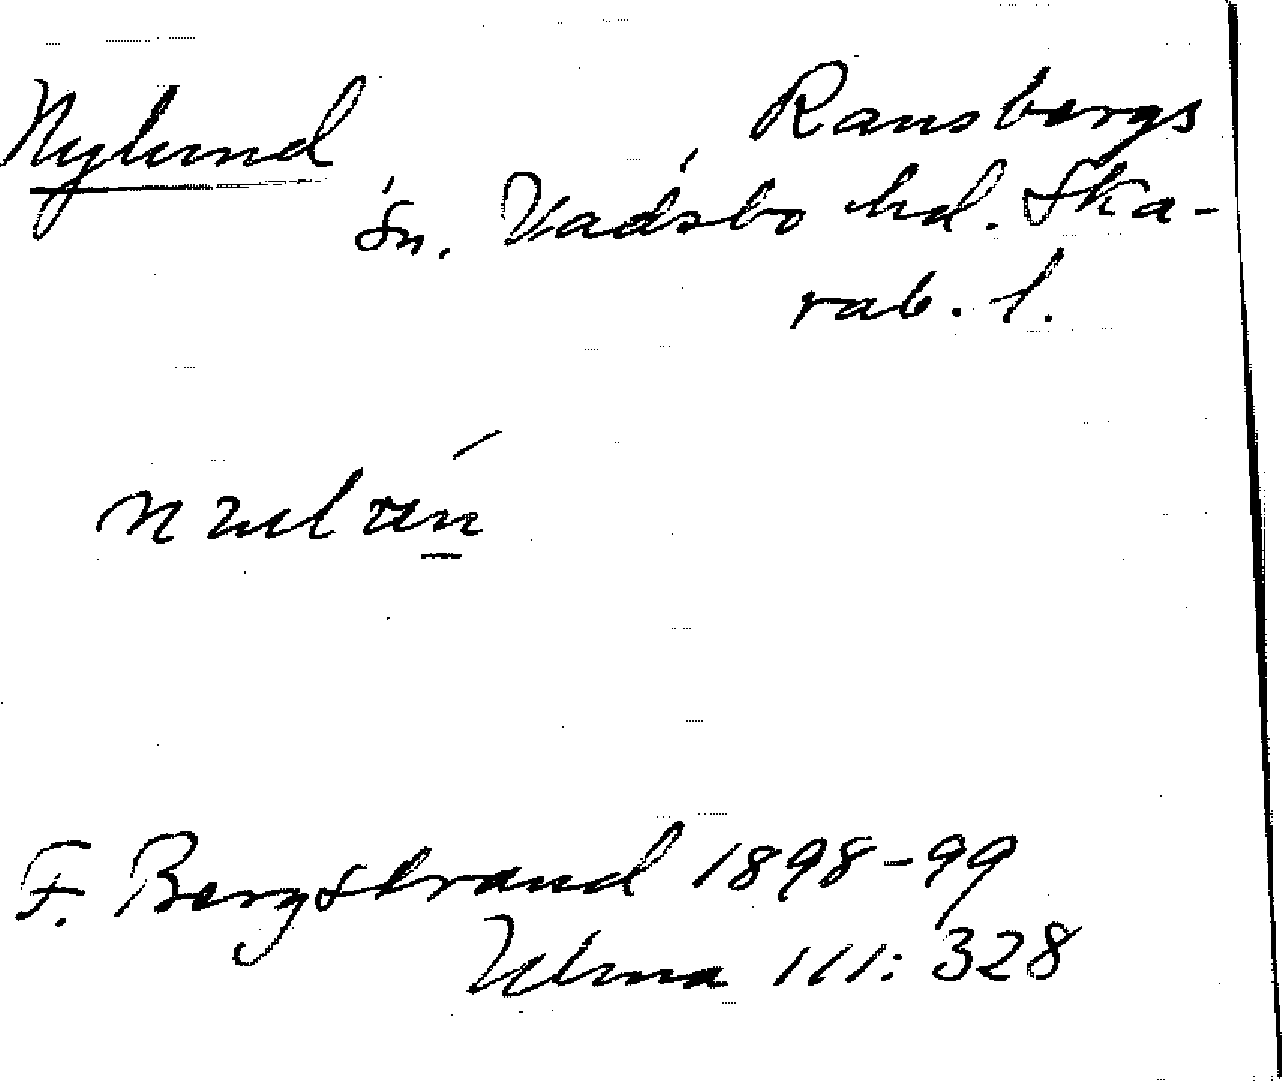 Nylund
Ransbergs
sn. Vadsbo hd. Ska-
rab. l.
F. Bergstrand 1898-99
Ulma 111: 328